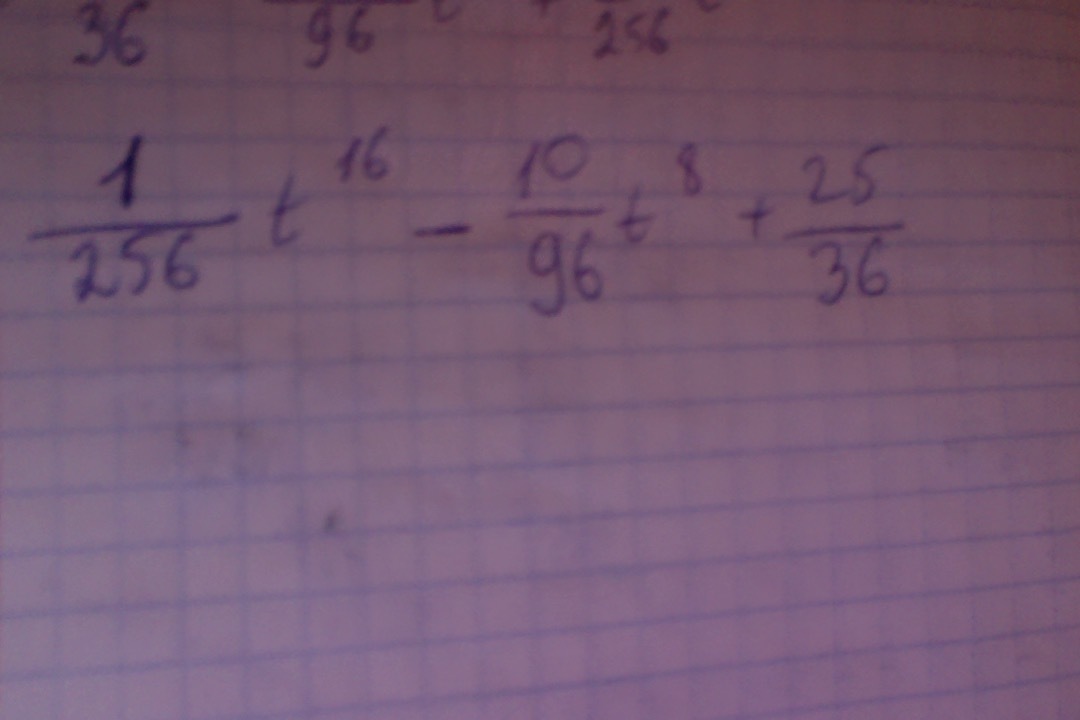 36 96 256
1/256 t^16 - 10/96 t^8 + 25/36